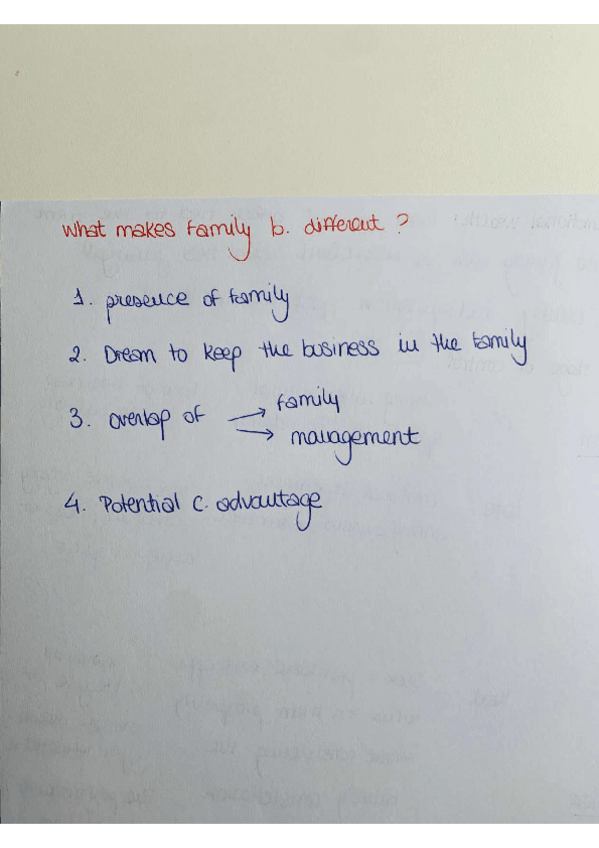 What makes family b. different ?
1. presence of family
2. Dream to keep the business in the family
3. overlap of → family
→ management
4. Potential c. advantage